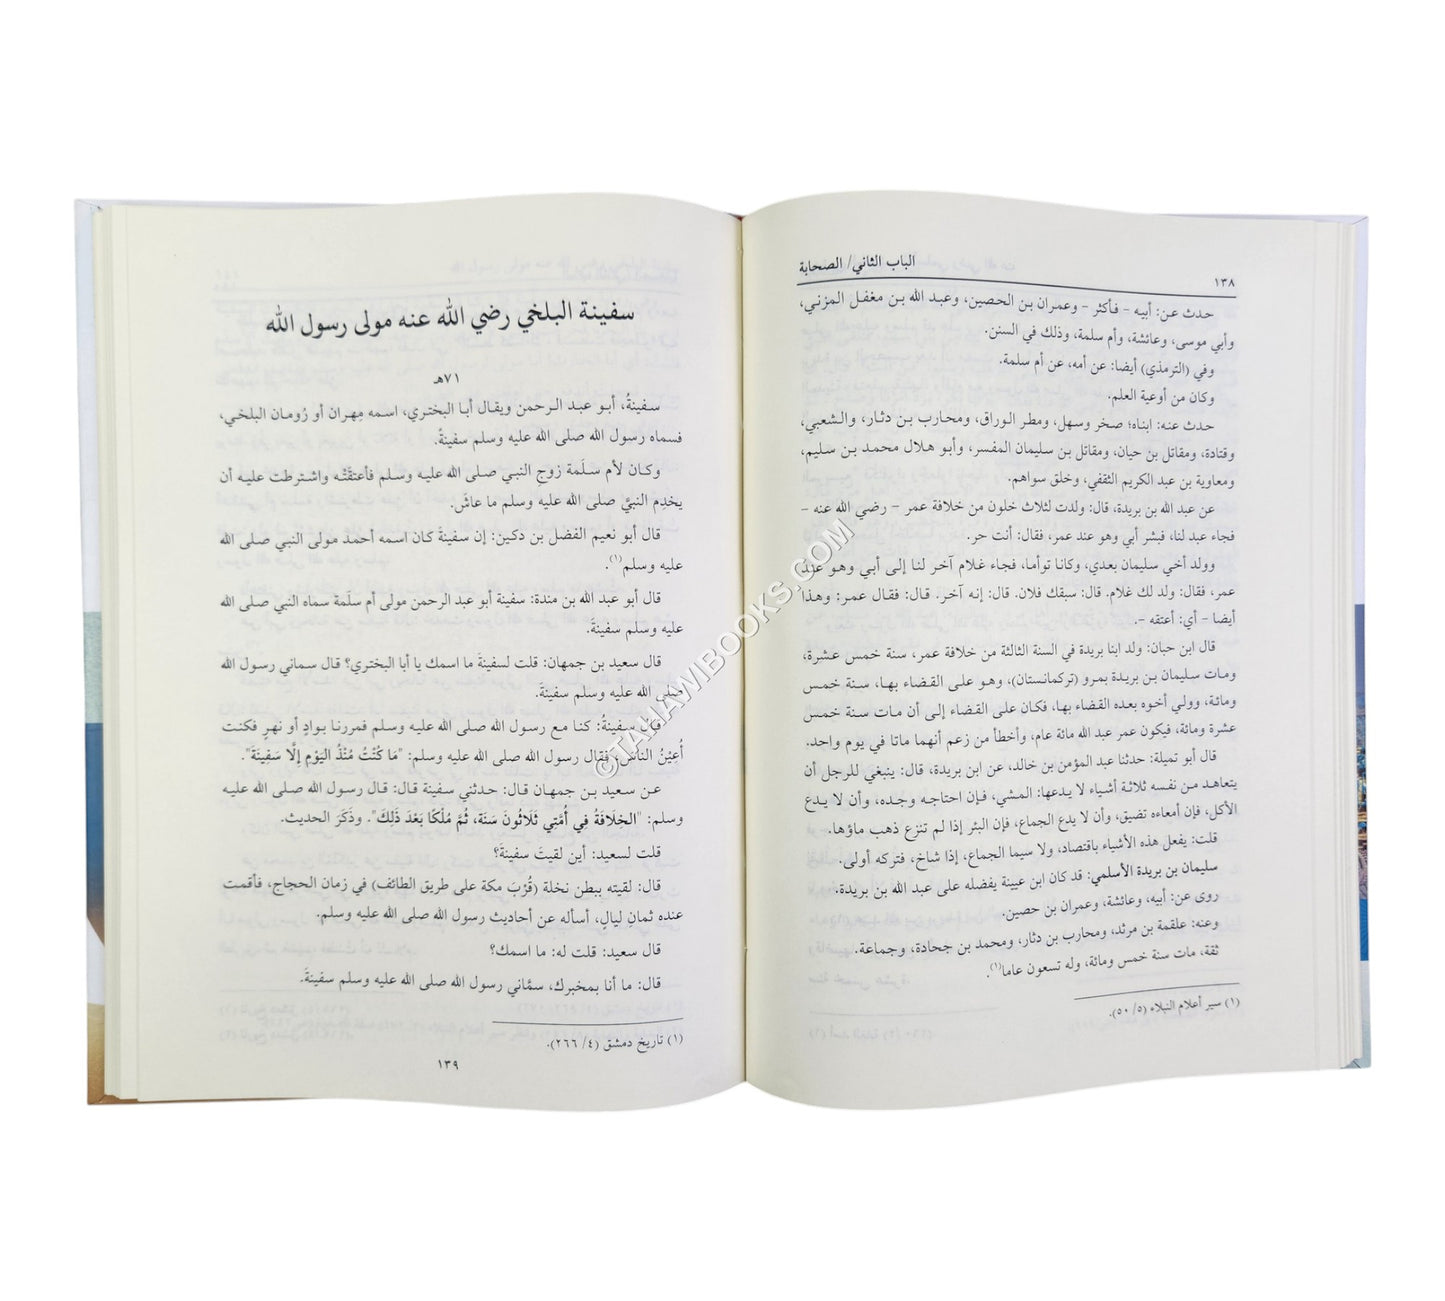 ١٣٨
الباب الثاني/ الصحابة
حدث عن: أبيه - فأكثر - وعمران بن الحصين، وعبد الله بن مغفل المزني،
وأبي موسى، وعائشة، وأم سلمة، وذلك في السنن.
وفي (الترمذي) أيضا: عن أمه، عن أم سلمة.
وكان من أوعية العلم.
حدث عنه: ابناه؛ صخر وسهل، ومطر الوراق، ومحارب بن دثار، والشعبي،
وقتادة، ومقاتل بن حيان، ومقاتل بن سليمان المفسر، وأبو هلال محمد بن سليم،
ومعاوية بن عبد الكريم الثقفي، وخلق سواهم.
عن عبد الله بن بريدة، قال: ولدت لثلاث خلون من خلافة عمر - رضي الله عنه -
فجاء عبد لنا، فبشر أبي وهو عند عمر، فقال: أنت حر.
وولد أخي سليمان بعدي، وكانا توأما، فجاء غلام آخر لنا إلى أبي وهو عند
عمر، فقال: ولد لك غلام. قال: سبقك فلان. قال: إنه آخر. قال: فقال عمر: وهذا
أيضا - أي: أعتقه -.
قال ابن حبان: ولد ابنا بريدة في السنة الثالثة من خلافة عمر، سنة خمس عشرة،
ومات سليمان بن بريدة بمرو (تركمانستان)، وهو على القضاء بها، سنة خمس
ومائة، وولي أخوه بعده القضاء بها، فكان على القضاء إلى أن مات سنة خمس
عشرة ومائة، فيكون عمر عبد الله مائة عام، وأخطأ من زعم أنهما ماتا في يوم واحد.
قال أبو تميلة: حدثنا عبد المؤمن بن خالد، عن ابن بريدة، قال: ينبغي للرجل أن
يتعاهد من نفسه ثلاثة أشياء لا يدعها: المشي، فإن احتاجه وجده، وأن لا يدع
الأكل، فإن أمعاءه تضيق، وأن لا يدع الجماع، فإن البئر إذا لم تنزع ذهب ماؤها.
قلت: يفعل هذه الأشياء باقتصاد، ولا سيما الجماع، إذا شاخ، فتركه أولى.
سليمان بن بريدة الأسلمي: قد كان ابن عيينة يفضله على عبد الله بن بريدة.
روى عن: أبيه، وعائشة، وعمران بن حصين.
وعنه: علقمة بن مرثد، ومحارب بن دثار، ومحمد بن جحادة، وجماعة.
ثقة، مات سنة خمس ومائة، وله تسعون عاما(١).
(١) سير أعلام النبلاء (٥/ ٥٠).
سفينة البلخي رضي الله عنه مولى رسول الله
٧١هـ
سفينةُ، أبو عبد الرحمن ويقال أبا البختري، اسمه مِهران أو رُومان البلخي،
فسماه رسول الله صلى الله عليه وسلم سفينةً.
وكان لأم سلَمة زوج النبي صلى الله عليه وسلم فأعتقَتْه واشترطت عليه أن
يخدِم النبيَّ صلى الله عليه وسلم ما عاش.
قال أبو نعيم الفضل بن دكين: إن سفينةَ كان اسمه أحمدَ مولى النبي صلى الله
عليه وسلم(١).
قال أبو عبد الله بن مندة: سفينة أبو عبد الرحمن مولى أم سلَمة سماه النبي صلى الله
عليه وسلم سفينةَ.
قال سعيد بن جمهان: قلت لسفينةَ ما اسمك يا أبا البختري؟ قال سماني رسول الله
صلى الله عليه وسلم سفينةَ.
قال سفينةُ: كنا مع رسول الله صلى الله عليه وسلم فمررنا بوادٍ أو نهرٍ فكنت
أُعِيْنُ الناسَ، فقال رسول الله صلى الله عليه وسلم: "مَا كُنْتُ مُنْذُ اليَوْمِ إِلَّا سَفِينَةً".
عن سعيد بن جمهان قال: حدثني سفينة قال: قال رسول الله صلى الله عليه
وسلم: "الخِلَافَةُ فِي أُمَّتِي ثَلَاثُونَ سَنَة، ثُمَّ مُلْكًا بَعْدَ ذَلِكَ". وذَكَرَ الحديث.
قلت لسعيد: أين لقيتَ سفينةَ؟
قال: لقيته ببطن نخلة (قُرْبَ مكة على طريق الطائف) في زمان الحجاج، فأقمت
عنده ثمانِ ليالٍ، أسأله عن أحاديث رسول الله صلى الله عليه وسلم.
قال سعيد: قلت له: ما اسمك؟
قال: ما أنا بمخبرك، سمَّاني رسول الله صلى الله عليه وسلم سفينةَ.
(١) تاريخ دمشق (٤/ ٢٦٦).
١٣٩
©TAHAWIBOOKS.COM